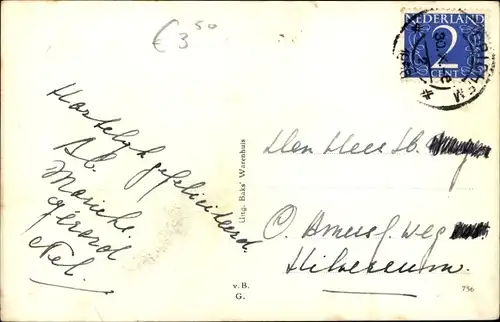 € 3 50
NEDERLAND
2
CENT
Hartelijk gefeliciteerd.
Ab.
Mariche.
Gerard
Nel.
Uitg. Baks' Warenhuis
v. B.
G.
Den Heer Ab.
O. Amersf. weg
Hilversum.
756